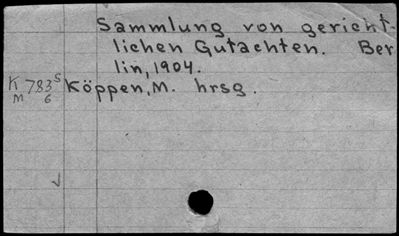 Sammlung von gericht-
lichen Gutachten. Ber
lin, 1904.
K 783 S Köppen, M. hrsg.
M 6